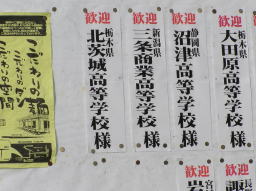 歓迎
栃木県
大田原高等学校様
歓迎
静岡県
沼津高等学校様
歓迎
新潟県
三条商業高等学校様
歓迎
栃木県
北茨城高等学校様
歓迎
歓迎
こだわりの麺
こだわりのダシ
こだわりの空間